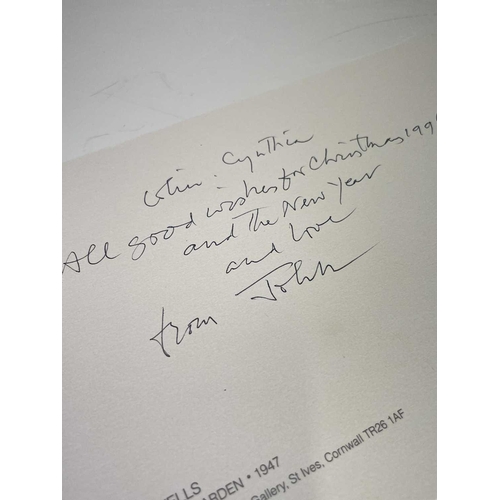 Colin : Cynthia
All good wishes for Christmas 199
and The New Year
and love
from John
ELLS
ARDEN • 1947
Gallery, St Ives, Cornwall TR26 1AF